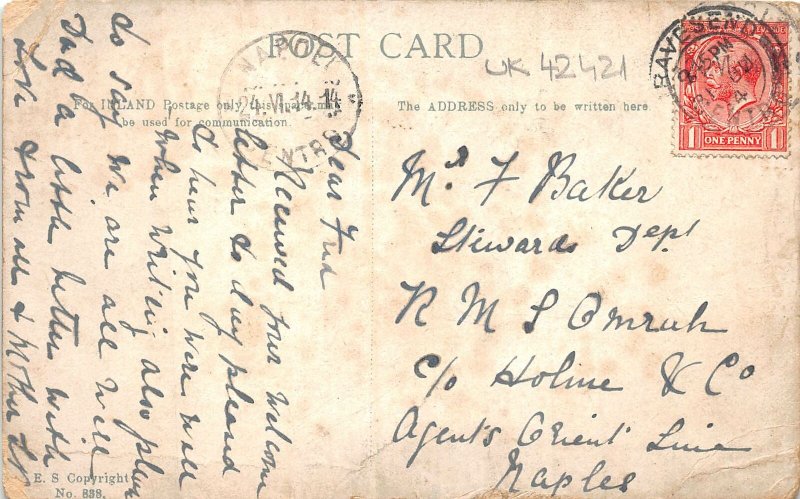 POST CARD
UK 42421
For INLAND Postage only this Space may
be used for communication.
The ADDRESS only to be written here.
NAPOLI
24. VI. 14. 14
CENTRO
GRAVESEND
ONE PENNY
1 1
Dear Fred
Received your welcome
letter to day pleased
to hear you were well
when writing also pleased
to say we are all well
Dad a little better with
love from all & Mother
Mr F Baker
Stewards Dept
R M S Omrah
c/o Holme & Co
Agents Orient Line
Naples
E. S Copyright
No. 838.